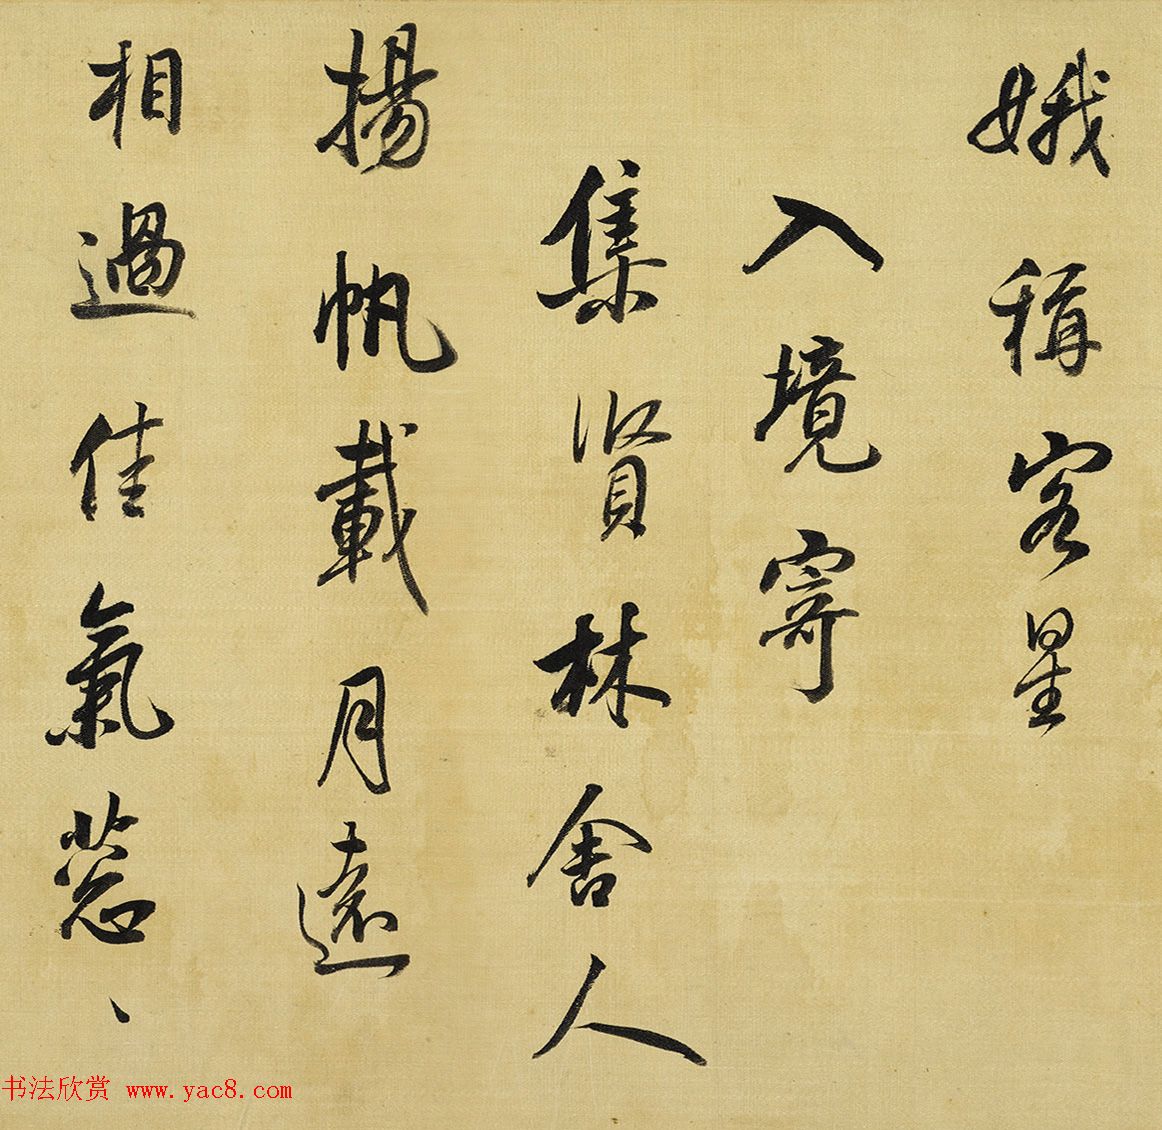 娥稱客星
入境寄
集賢林舍人
揚帆載月遠
相過佳氣葱、
书法欣赏 www.yac8.com